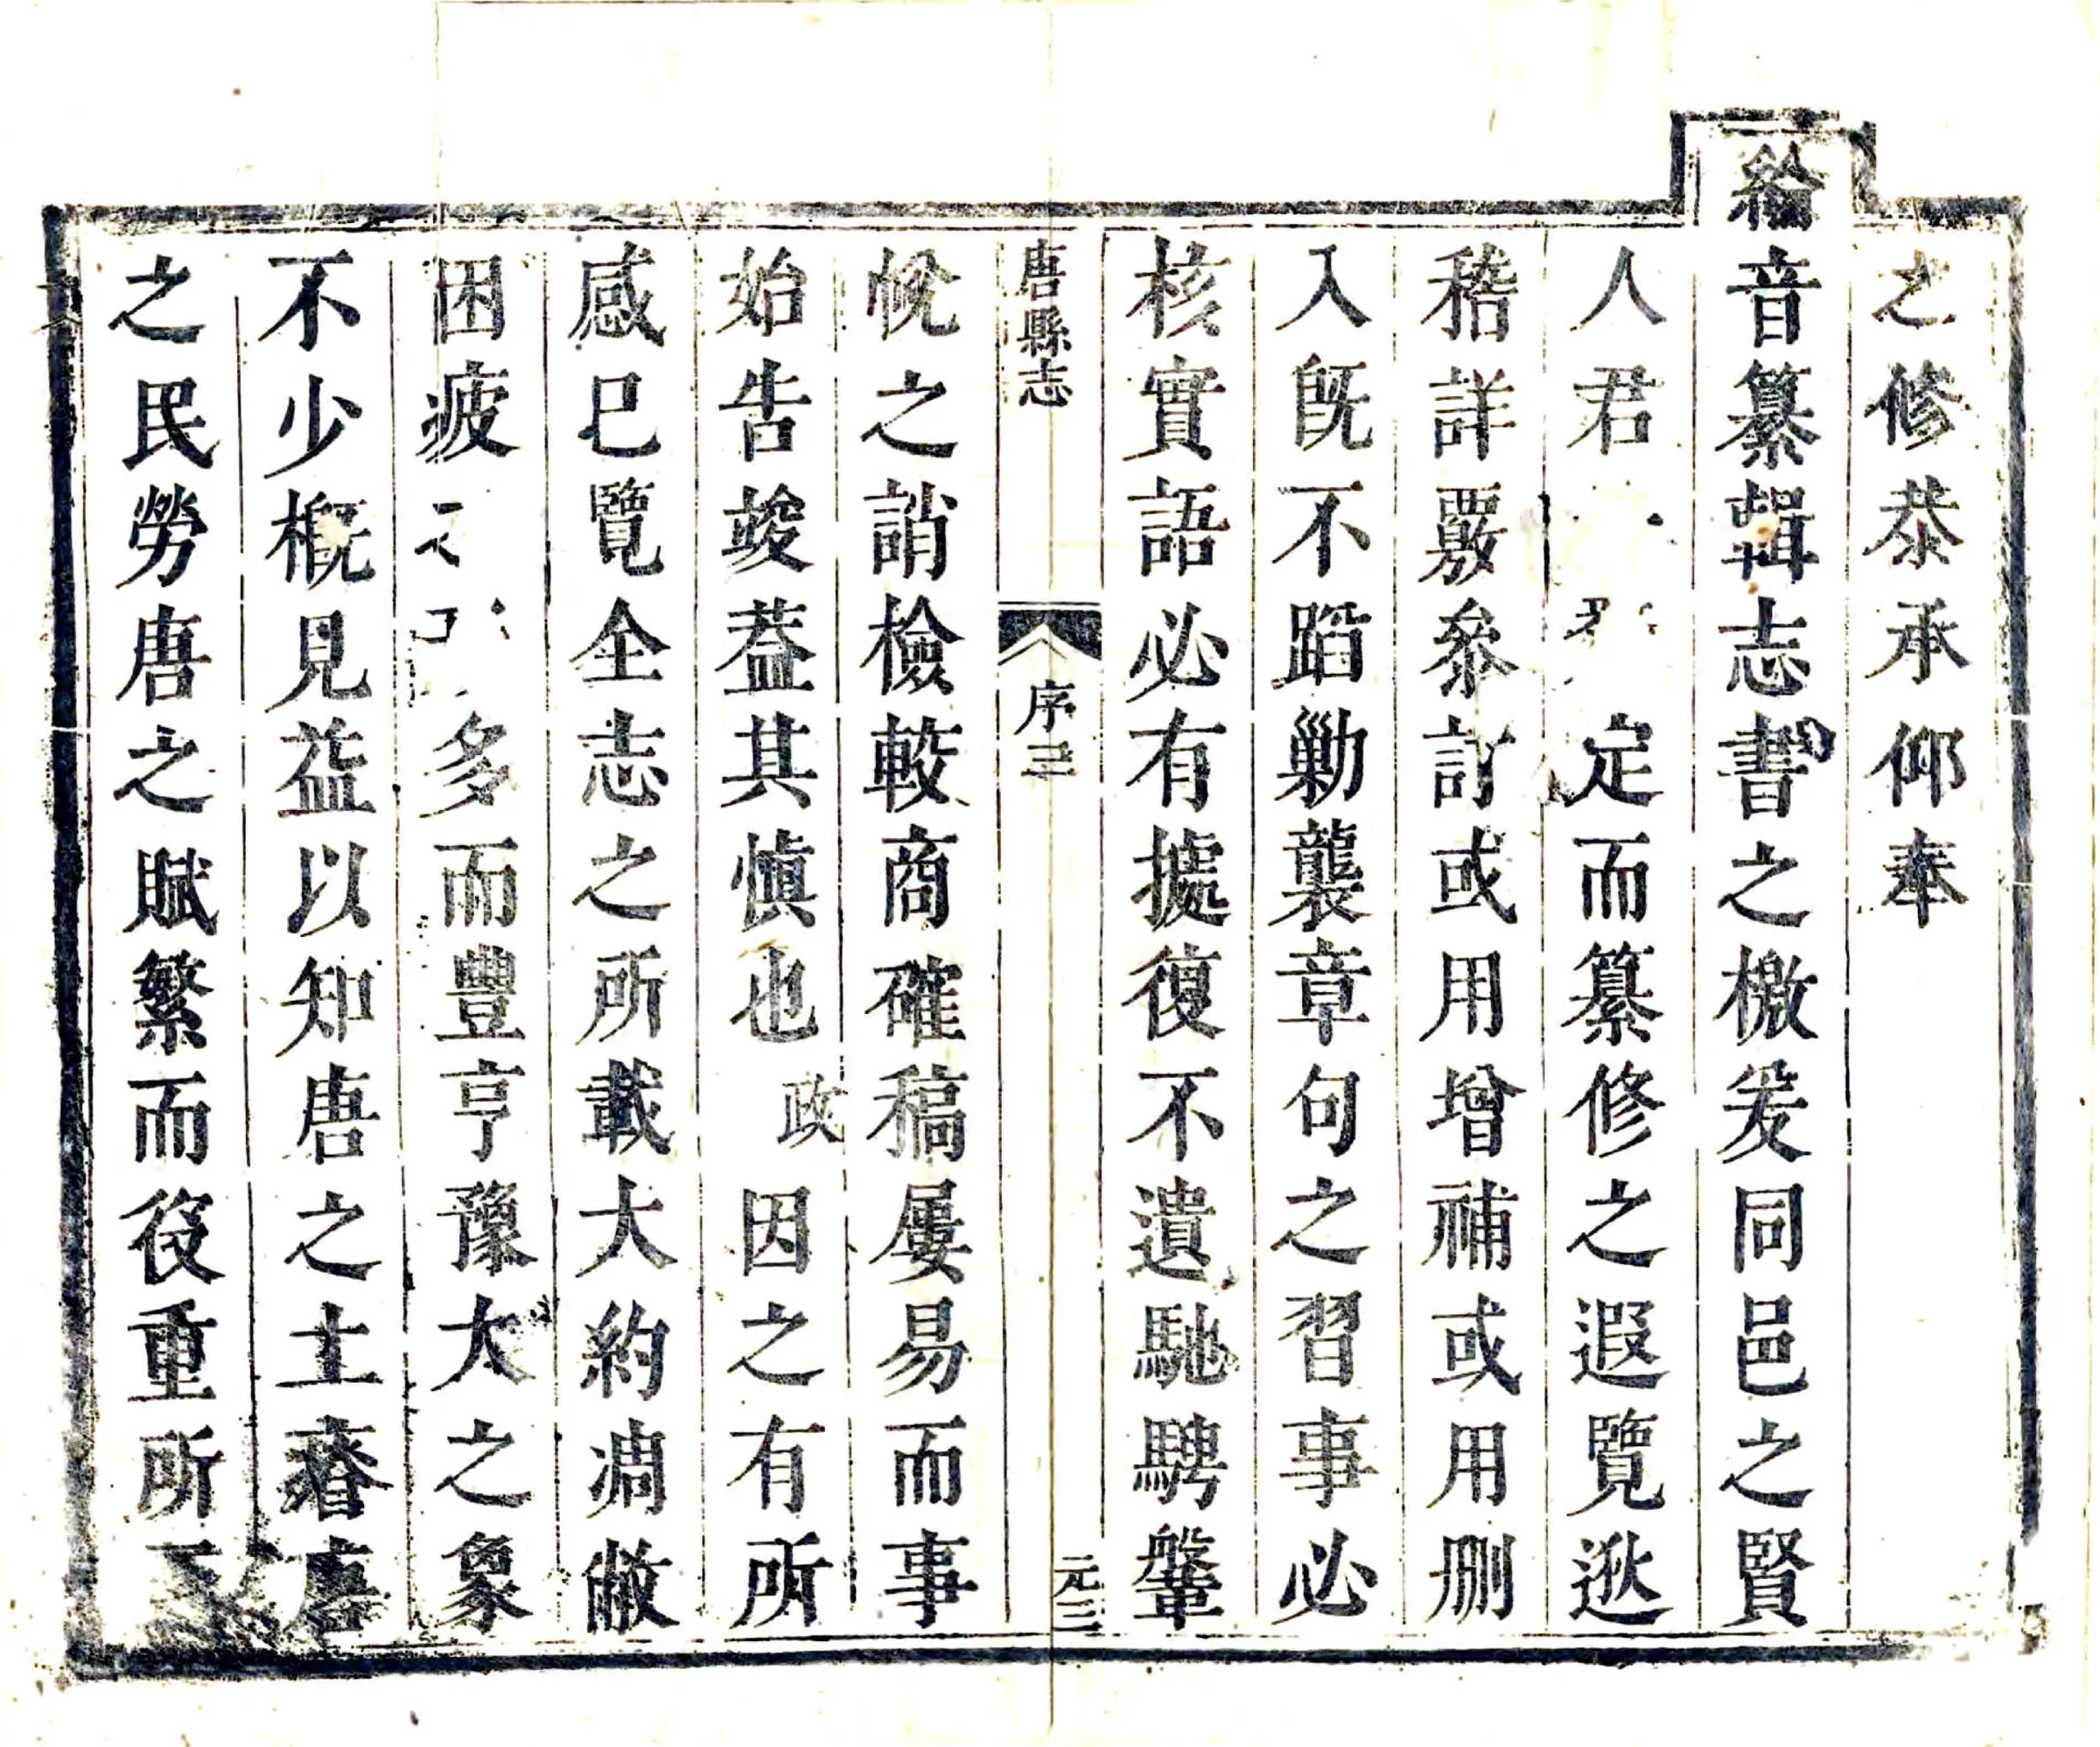 之修恭承仰奉
綸音纂輯志書之檄爰同邑之賢
人君定而纂修之遐覽逖
稽詳覈叅訂或用增補或用刪
入旣不蹈勦襲章句之習事必
核實語必有據復不遺馳騁鞶
唐縣志
序三
元三
帨之誚檢較商確稿屢易而事
始告竣葢其慎也政因之有所
感已覽全志之所載大約凋敝
困疲多而豐亨豫大之象
不少概見益以知唐之土瘠
之民勞唐之賦繁而役重所